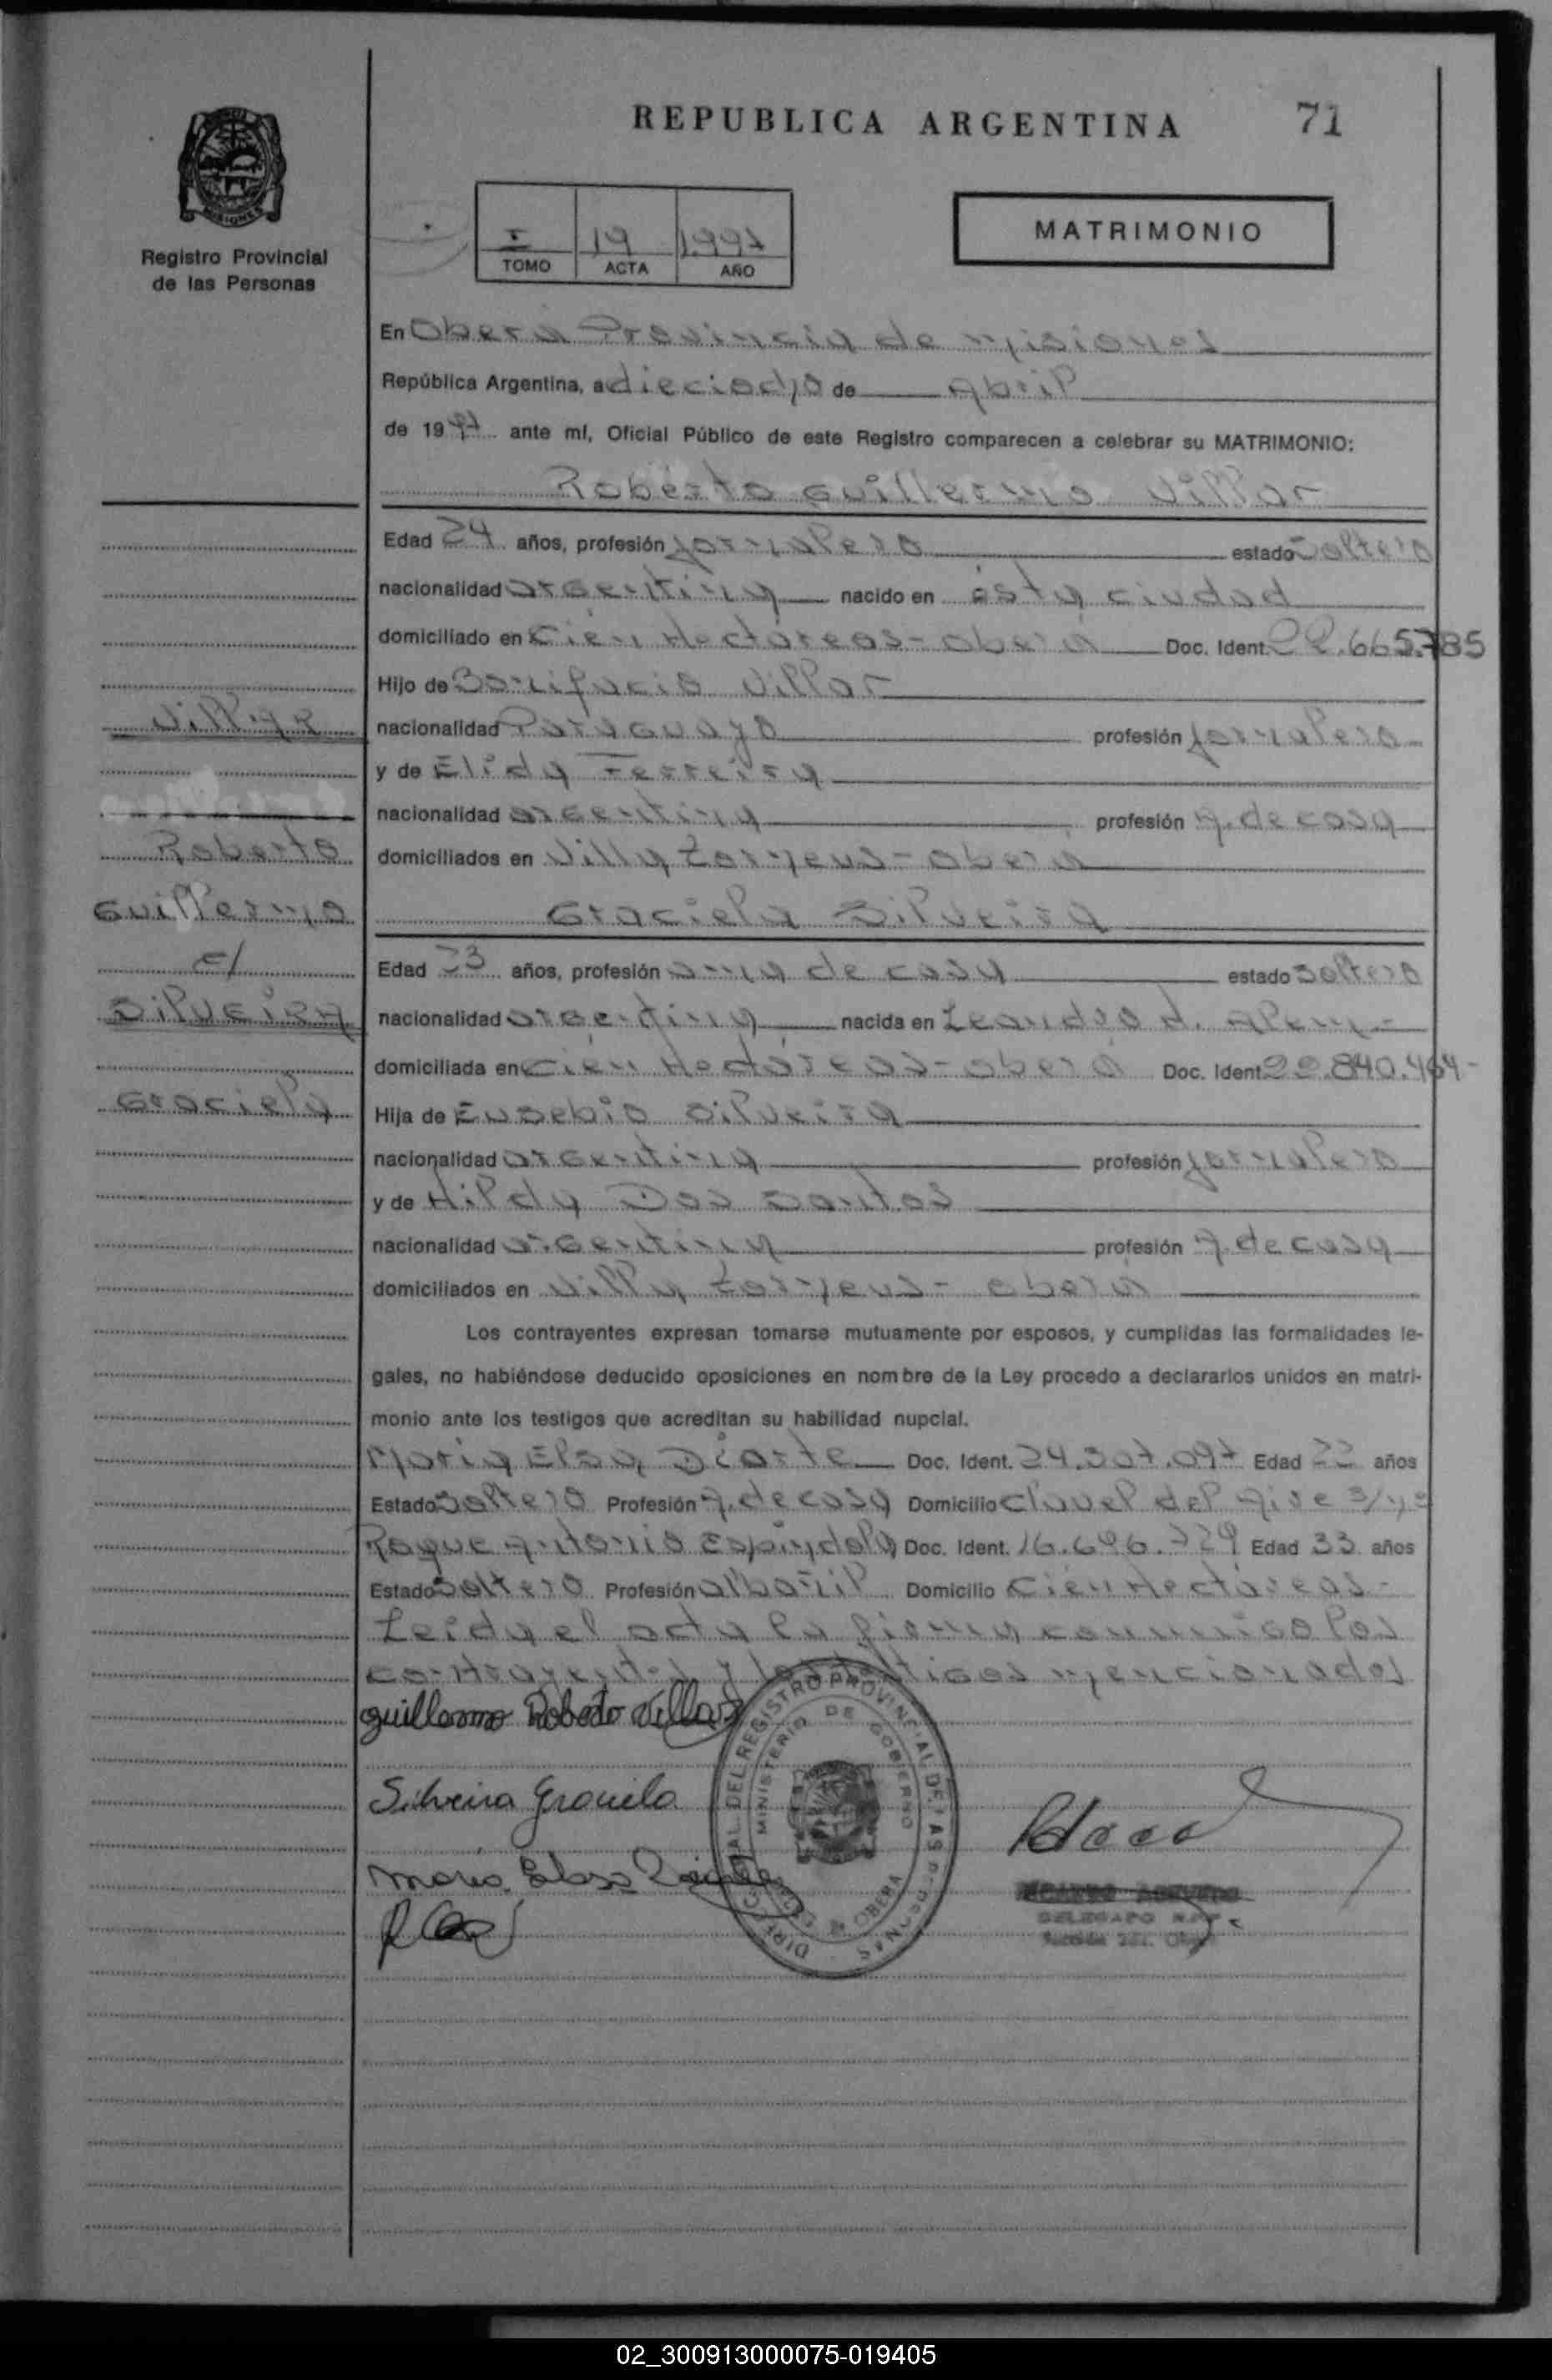 REPUBLICA ARGENTINA 71
Registro Provincial
de las Personas
I 19 1997
TOMO ACTA AÑO
MATRIMONIO
En Oberá Provincia de Misiones
República Argentina, a dieciocho de Abril
de 1997 ante mí, Oficial Público de este Registro comparecen a celebrar su MATRIMONIO:
Roberto Guillermo Villar
Edad 24 años, profesión jornalero estado soltero
nacionalidad argentina nacido en ésta ciudad
domiciliado en Cien Hectáreas - Oberá Doc. Ident. 22.665.785
Hijo de Bonifacio Villar
nacionalidad Paraguayo profesión jornalero
y de Elida Ferreira
nacionalidad argentina profesión A. de casa
domiciliados en Villa Torneus - Oberá
Graciela Silveira
Edad 23 años, profesión ama de casa estado soltera
nacionalidad argentina nacida en Leandro N. Alem -
domiciliada en Cien Hectáreas - Oberá Doc. Ident. 22.840.464 -
Hija de Eusebio Silveira
nacionalidad argentina profesión jornalero
y de Hilda Dos Santos
nacionalidad argentina profesión A. de casa
domiciliados en Villa Torneus - Oberá
Los contrayentes expresan tomarse mutuamente por esposos, y cumplidas las formalidades le-
gales, no habiéndose deducido oposiciones en nombre de la Ley procedo a declararlos unidos en matri-
monio ante los testigos que acreditan su habilidad nupcial.
Maria Elsa Diarte Doc. Ident. 24.307.097 Edad 22 años
Estado soltero Profesión A. de casa Domicilio Clavel del Aire s/n°
Roque Antonio Espindola Doc. Ident. 16.696.729 Edad 33 años
Estado soltero Profesión albañil Domicilio Cien Hectáreas -
Leida el acta la firman conmigo los
contrayentes y los testigos mencionados
Guillermo Roberto Villar
Silveira Graciela
Maria Elsa Diarte
DIRECCION GRAL. DEL REGISTRO PROVINCIAL DE LAS PERSONAS
MINISTERIO DE GOBIERNO
OBERA
DELEGADO
Villar
Roberto
Guillermo
c/
Silveira
Graciela
02_300913000075-019405